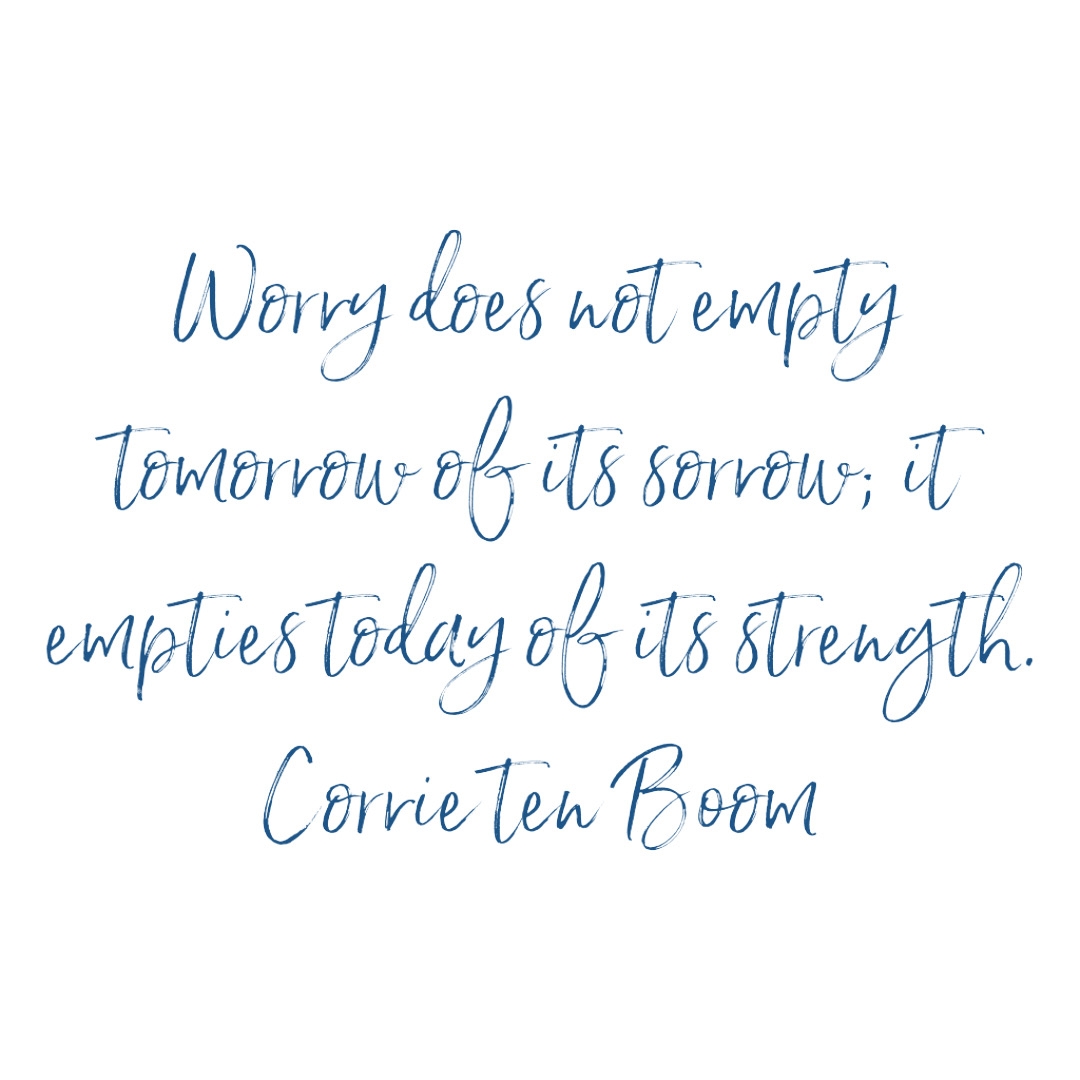 Worry does not empty
tomorrow of its sorrow; it
empties today of its strength.
Corrie ten Boom